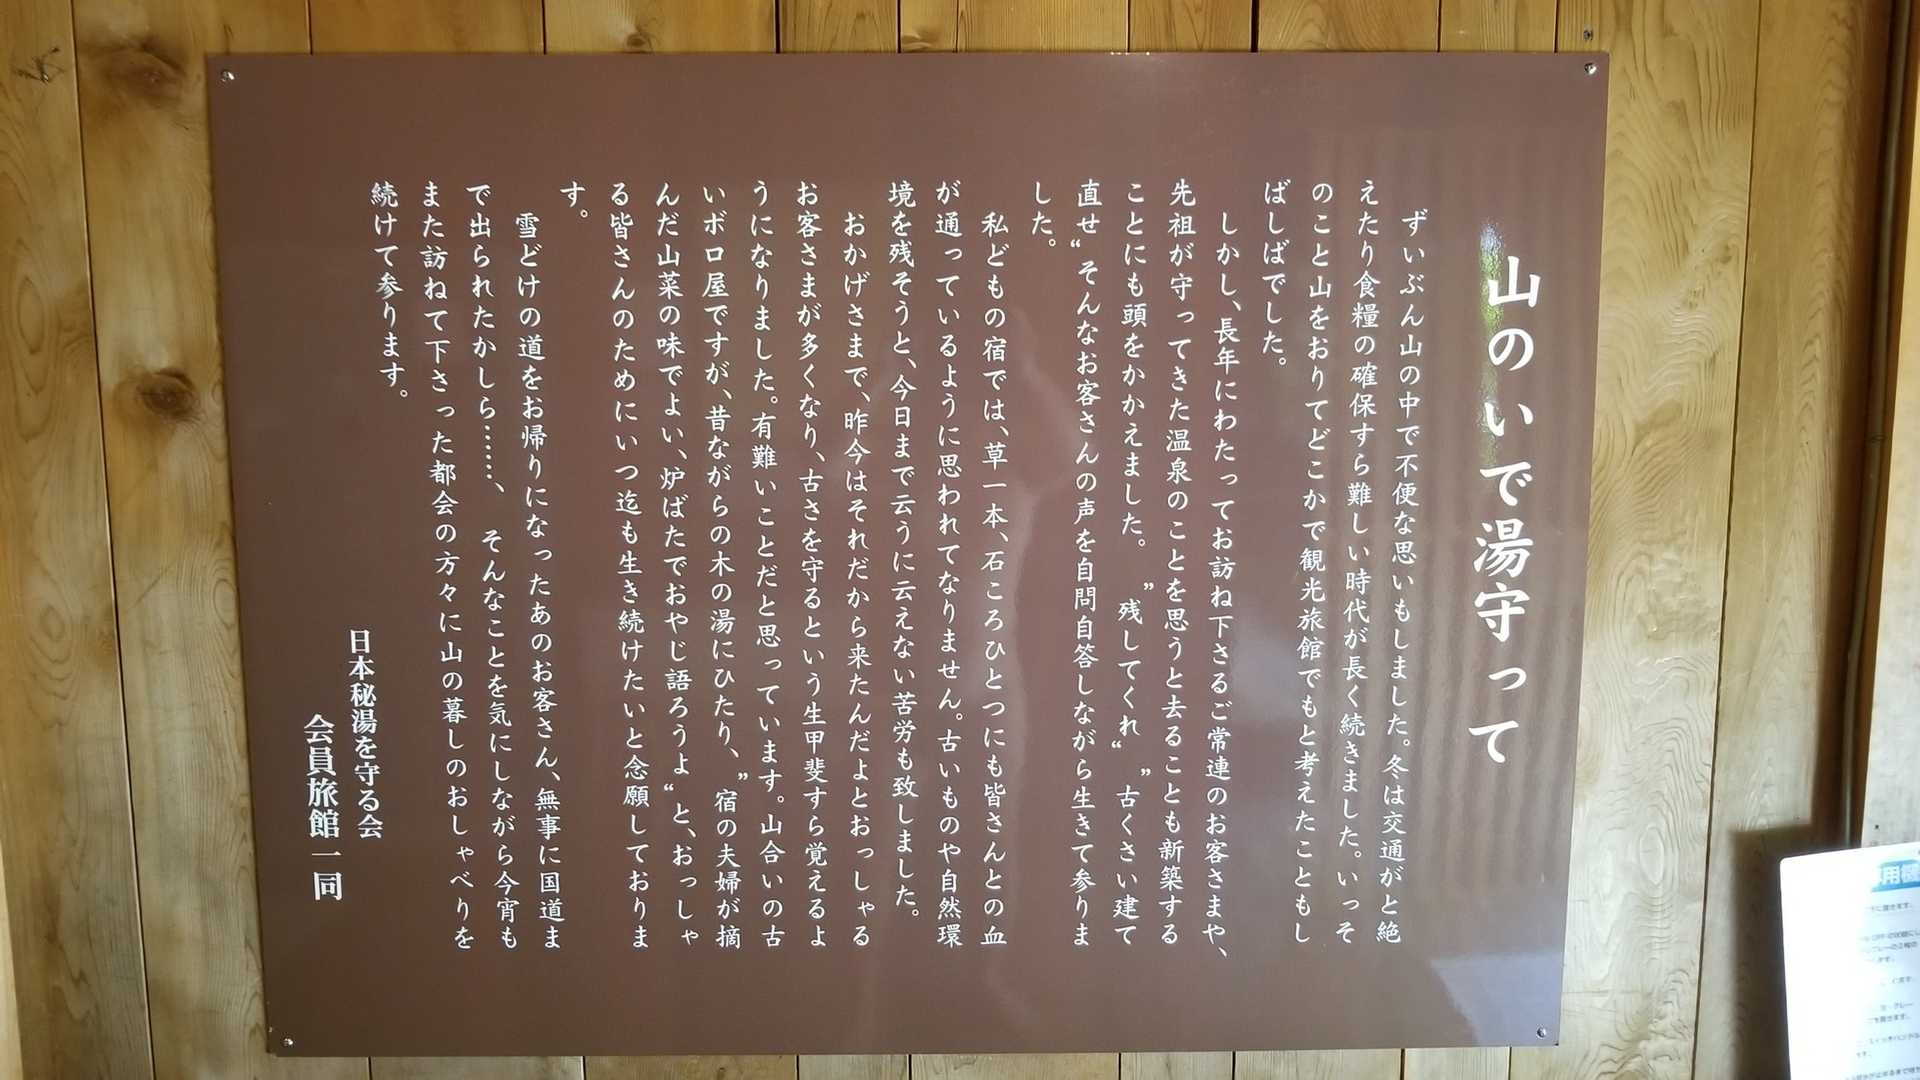 山のいで湯守って
ずいぶん山の中で不便な思いもしました。冬は交通がと絶
えたり食糧の確保すら難しい時代が長く続きました。いっそ
のこと山をおりてどこかで観光旅館でもと考えたこともし
ばしばでした。
しかし、長年にわたってお訪ね下さるご常連のお客さまや、
先祖が守ってきた温泉のことを思うと去ることも新築する
ことにも頭をかかえました。〝残してくれ〟〝古くさい建て
直せ〟そんなお客さんの声を自問自答しながら生きて参りま
した。
私どもの宿では、草一本、石ころひとつにも皆さんとの血
が通っているように思われてなりません。古いものや自然環
境を残そうと、今日まで云うに云えない苦労も致しました。
おかげさまで、昨今はそれだから来たんだよとおっしゃる
お客さまが多くなり、古さを守るという生甲斐すら覚えるよ
うになりました。有難いことだと思っています。山合いの古
いボロ屋ですが、昔ながらの木の湯にひたり、〝宿の夫婦が摘
んだ山菜の味でよい、炉ばたでおやじ語ろうよ〟と、おっしゃ
る皆さんのためにいつ迄も生き続けたいと念願しておりま
す。
雪どけの道をお帰りになったあのお客さん、無事に国道ま
で出られたかしら……、そんなことを気にしながら今宵も
また訪ねて下さった都会の方々に山の暮しのおしゃべりを
続けて参ります。
日本秘湯を守る会
会員旅館一同